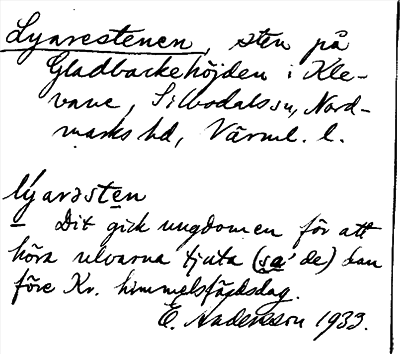 Lyarestenen, sten på
Gladbackehöjden i Kle-
vane, Silbodals sn, Nord-
marks hd, Värml. l.
lýarəstęn
— Dit gick ungdomen för att
höra ulvarna tjuta (sa' de) dan
före Kr. himmelsfärdsdag.
E. Andersson 1933.